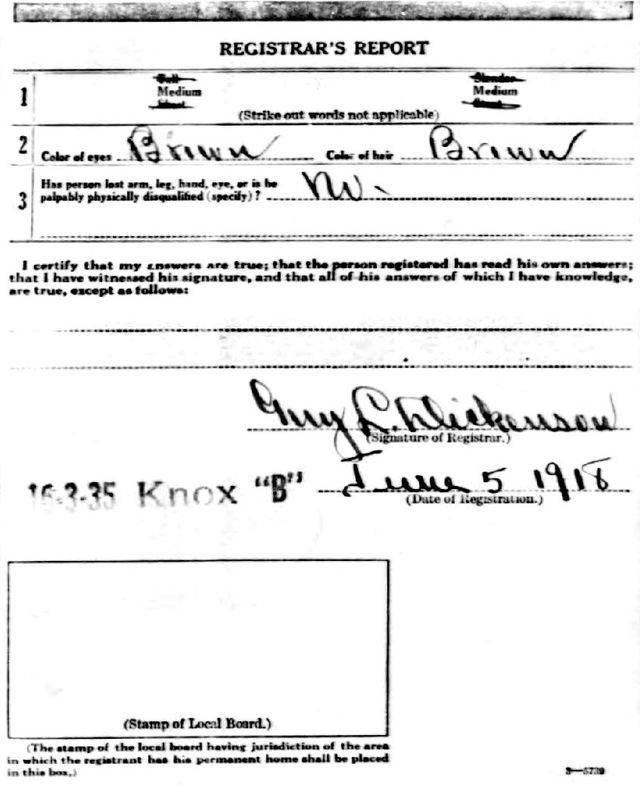 REGISTRAR'S REPORT
1 Tall Slender
Medium Medium
Short Stout
(Strike out words not applicable)
2 Color of eyes Brown Color of hair Brown
3 Has person lost arm, leg, hand, eye, or is he
palpably physically disqualified (specify)? No.
I certify that my answers are true; that the person registered has read his own answers;
that I have witnessed his signature, and that all of his answers of which I have knowledge,
are true, except as follows:
Guy L. Dickenson
(Signature of Registrar.)
16-3-35 Knox "B" June 5 1918
(Date of Registration.)
(Stamp of Local Board.)
(The stamp of the local board having jurisdiction of the area
in which the registrant has his permanent home shall be placed
in this box.)
3—5739